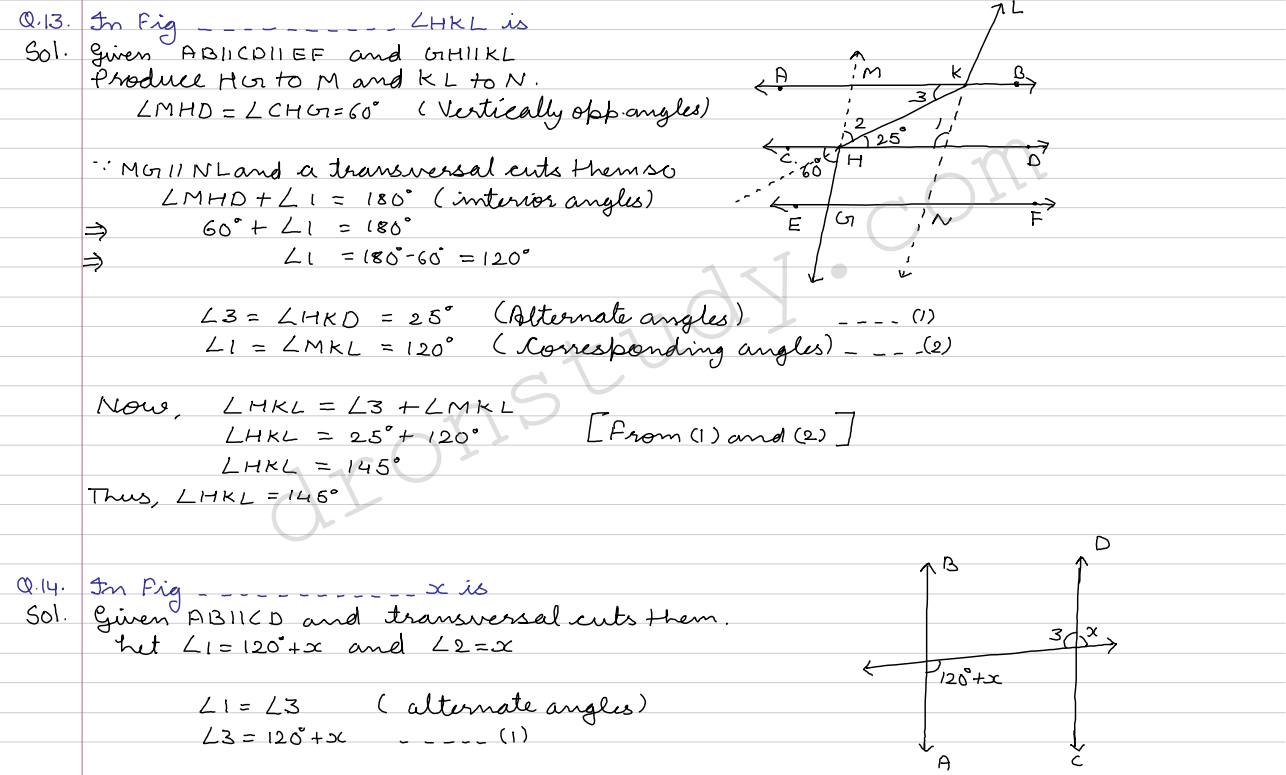 Q.13. In Fig ------------ ∠HKL is
Sol. Given AB||CD||EF and GH||KL
Produce HG to M and KL to N.
∠MHD = ∠CHG = 60° (Vertically opp. angles)
∵ MG || NL and a transversal cuts them so
∠MHD + ∠1 = 180° (interior angles)
⇒ 60° + ∠1 = 180°
⇒ ∠1 = 180° - 60° = 120°
∠3 = ∠HKD = 25° (Alternate angles) ---- (1)
∠1 = ∠MKL = 120° (Corresponding angles) ---- (2)
Now, ∠HKL = ∠3 + ∠MKL
∠HKL = 25° + 120° [From (1) and (2)]
∠HKL = 145°
Thus, ∠HKL = 145°
L
A M K B
3
2 1
25°
C H D
60°
E G N F
Q.14. In Fig ------------- x is
Sol. Given AB||CD and transversal cuts them.
Let ∠1 = 120° + x and ∠2 = x
∠1 = ∠3 (alternate angles)
∠3 = 120° + x ----- (1)
D
B
3 x
120° + x
A C
dronstudy.com